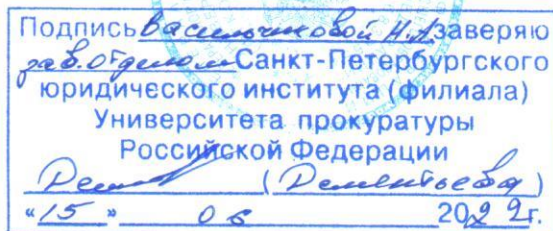 Подпись Васильчиковой Н.А. заверяю
зав. отделом Санкт-Петербургского
юридического института (филиала)
Университета прокуратуры
Российской Федерации
(Дементьева)
"15" 06 2022г.